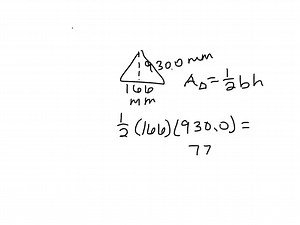 930.0 mm
166
mm
A△ = 1/2 bh
1/2 (166)(930.0) =
77